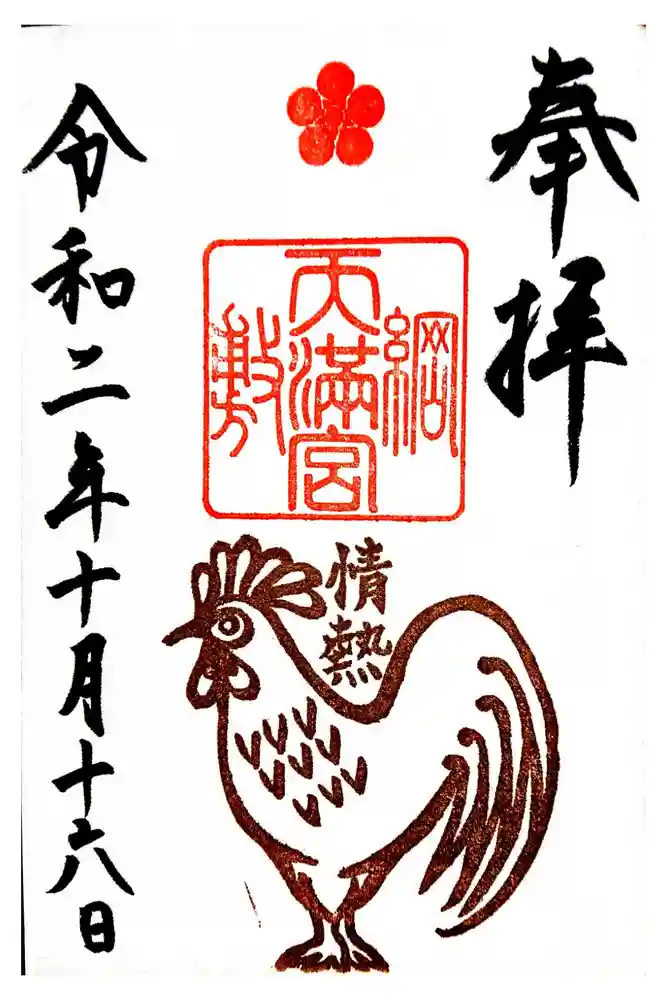 奉拝
綱
天満宮
敷
情熱
令和二年十月十六日